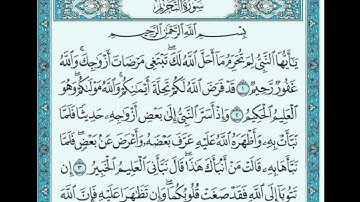 سُورَةُ التَّحْرِيمِ
بِسْمِ اللَّهِ الرَّحْمَٰنِ الرَّحِيمِ
يَٰٓأَيُّهَا ٱلنَّبِىُّ لِمَ تُحَرِّمُ مَآ أَحَلَّ ٱللَّهُ لَكَۖ تَبْتَغِى مَرْضَاتَ أَزْوَٰجِكَۚ وَٱللَّهُ
غَفُورٌ رَّحِيمٌ ١ قَدْ فَرَضَ ٱللَّهُ لَكُمْ تَحِلَّةَ أَيْمَٰنِكُمْۚ وَٱللَّهُ مَوْلَىٰكُمْۖ وَهُوَ
ٱلْعَلِيمُ ٱلْحَكِيمُ ٢ وَإِذْ أَسَرَّ ٱلنَّبِىُّ إِلَىٰ بَعْضِ أَزْوَٰجِهِۦ حَدِيثًا فَلَمَّا
نَبَّأَتْ بِهِۦ وَأَظْهَرَهُ ٱللَّهُ عَلَيْهِ عَرَّفَ بَعْضَهُۥ وَأَعْرَضَ عَنۢ بَعْضٍۖ فَلَمَّا
نَبَّأَهَا بِهِۦ قَالَتْ مَنْ أَنۢبَأَكَ هَٰذَاۖ قَالَ نَبَّأَنِىَ ٱلْعَلِيمُ ٱلْخَبِيرُ ٣ إِن
تَتُوبَآ إِلَى ٱللَّهِ فَقَدْ صَغَتْ قُلُوبُكُمَاۖ وَإِن تَظَٰهَرَا عَلَيْهِ فَإِنَّ ٱللَّهَ